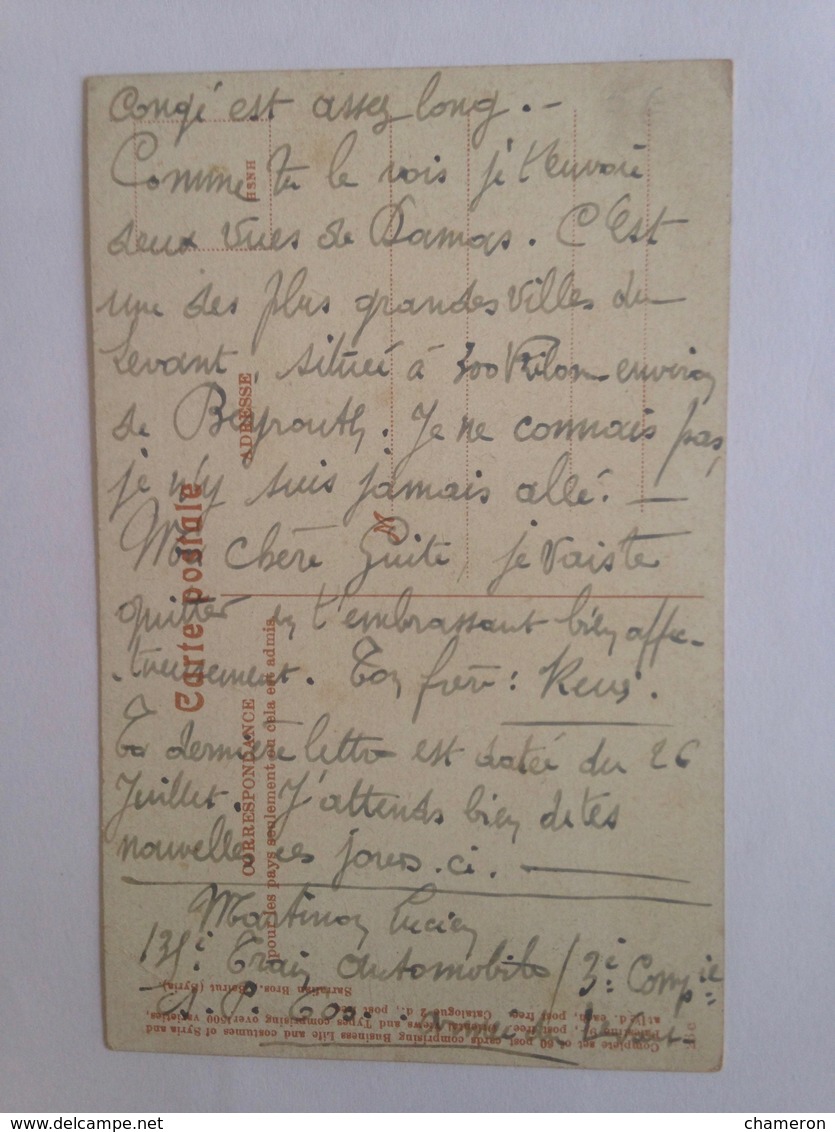 congé est assez long. -
Comme tu le vois je t'envoie
deux vues de Damas. C'Est
une des plus grandes villes du
Levant, située à 300 Kilom- environ
de Beyrouth. Je ne connais pas,
je n'y suis jamais allé. —
Ma chère Guite, je vais te
quitter en t'embrassant bien affec-
tueusement. Ton frère: René.
Ta dernière lettre est datée du 26
Juillet. J'attends bien de tes
nouvelles ces jours-ci. —
Martinon Lucien
Train Automobile / 3e Compie
HSNH
ADRESSE
Carte postale
M
CORRESPONDANCE
pour les pays seulement ou cela est admis
Complete set of 60 post cards comprising Business Life and costumes of Syria and
Palestine post free. Oriental views and Types and Types comprising over 1000 varieties,
at d. each, post free. Catalogue 2 d., post free.
Sarrafian Bros. Beirut (Syria).
www.delcampe.net
chameron